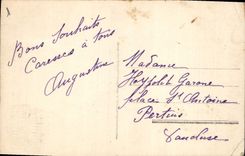 Bons Souhaits
Caresses à tous
Augustine
Madame
Hoypolit Garone
place St Antoine
Pertuis
Vaucluse